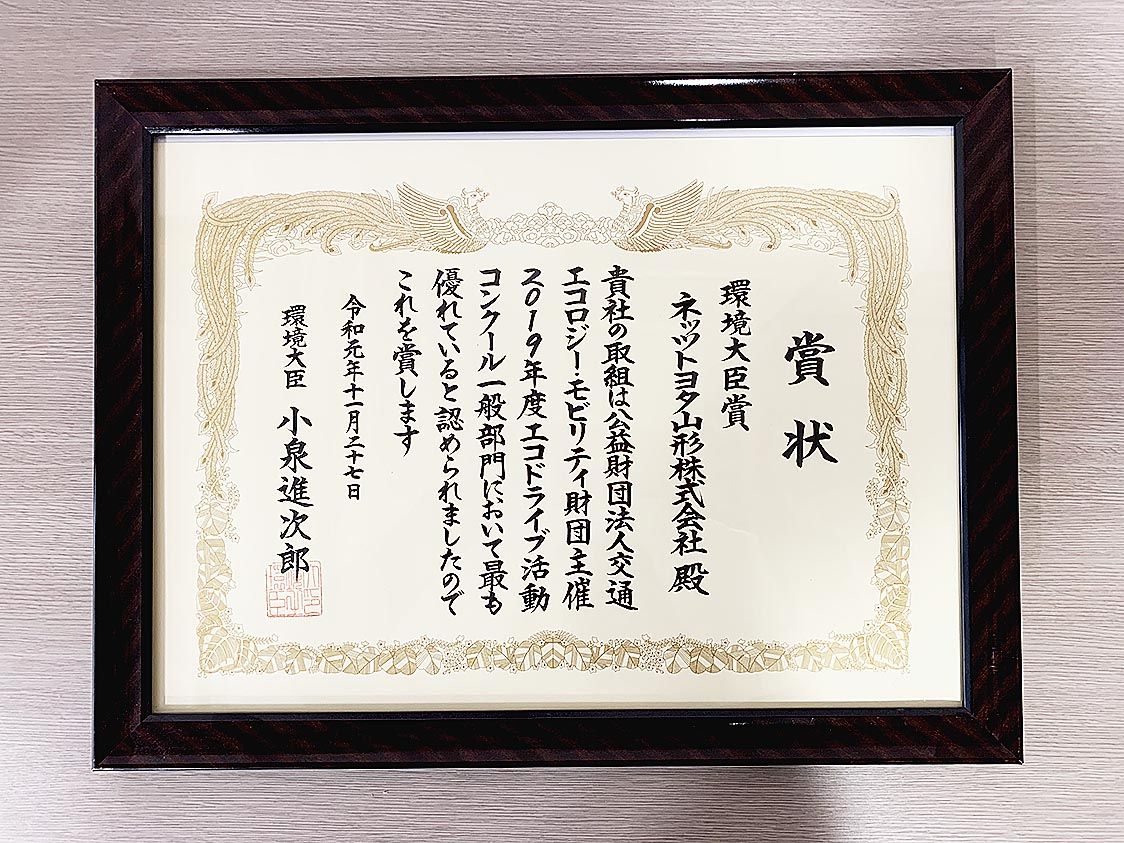 賞状
環境大臣賞
ネッツトヨタ山形株式会社 殿
貴社の取組は公益財団法人交通
エコロジー・モビリティ財団主催
2019年度エコドライブ活動
コンクール一般部門において最も
優れていると認められましたので
これを賞します
令和元年十一月二十七日
環境大臣 小泉進次郎